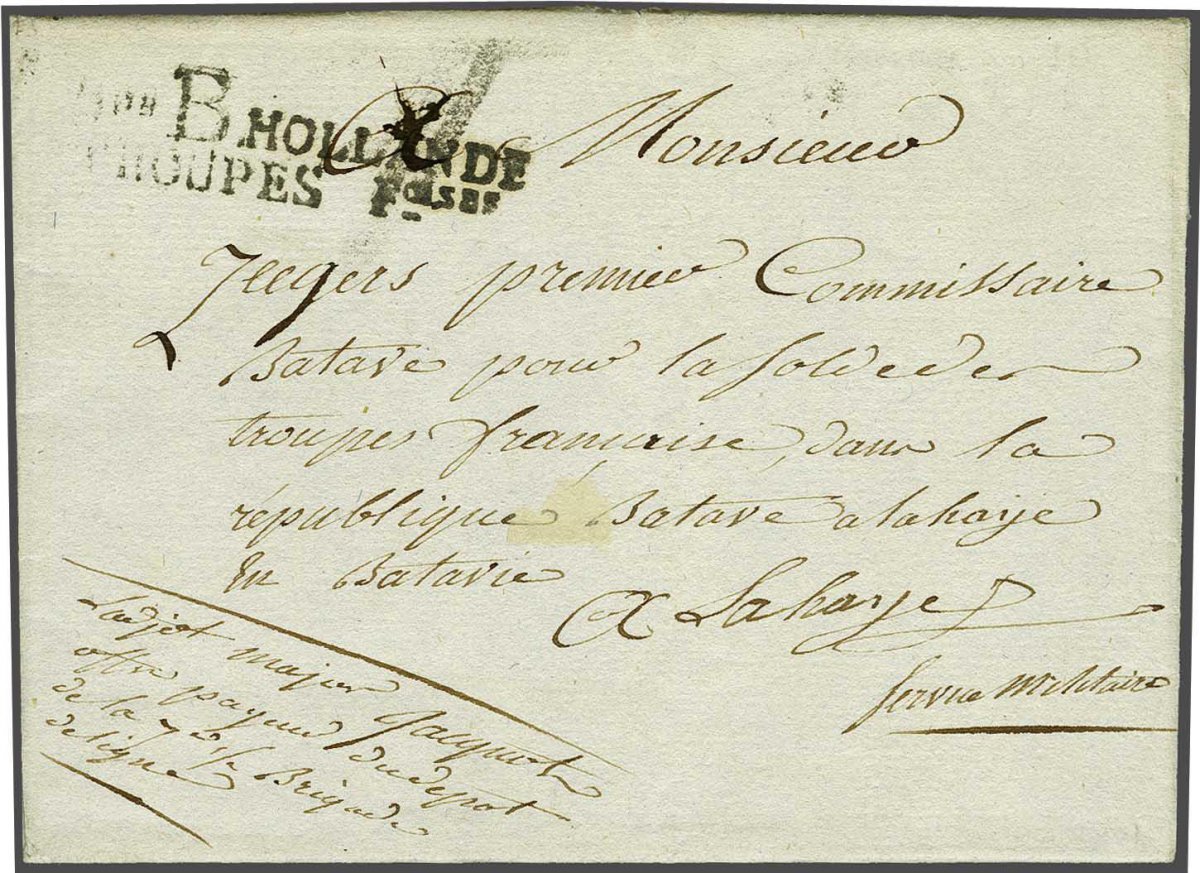 B.HOLLANDE
TROUPES Fçises
A Monsieur
Zeegers premier Commissaire
Batave pour la solde des
troupes francaise, dans la
république Batave a lahaye
En Batavie
A Lahaye
service militaire
Ladjot major Jacquot
offr payeur du depot
de la 7e 1/2 Brigade
de ligne